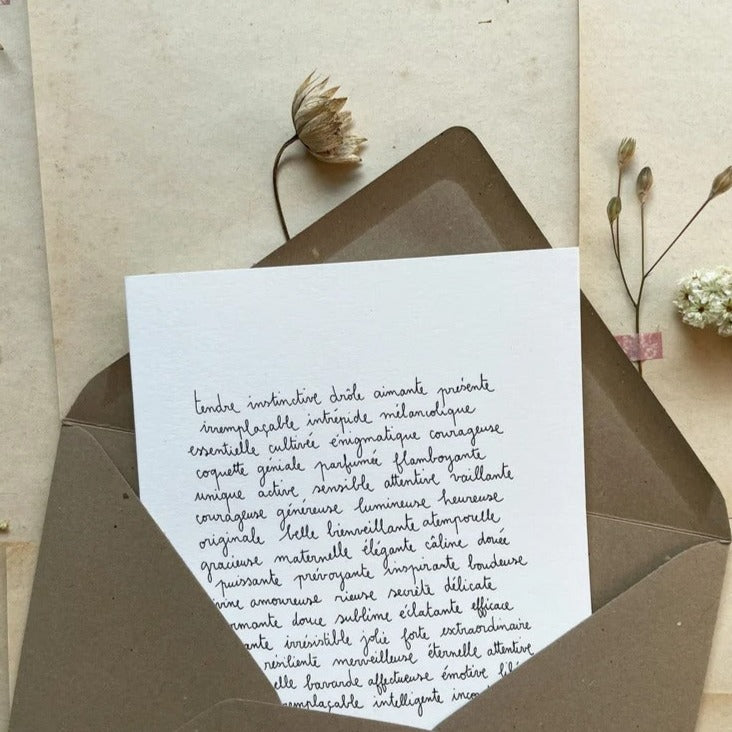 tendre instinctive drôle aimante présente
irremplaçable intrépide mélancolique
essentielle cultivée énigmatique courageuse
coquette géniale parfumée flamboyante
unique active sensible attentive vaillante
courageuse généreuse lumineuse heureuse
originale belle bienveillante atemporelle
gracieuse maternelle élégante câline douée
puissante prévoyante inspirante boudeuse
amoureuse rieuse secrète délicate
douce sublime éclatante efficace
irrésistible jolie forte extraordinaire
résiliente merveilleuse éternelle attentive
bavarde affectueuse émotive
intelligente